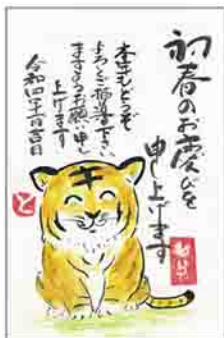 初春のお慶びを
申し上げます
本年もどうぞ
よろしくご指導下さい
ますようお願い申し
上げます
令和四年一月吉日
と